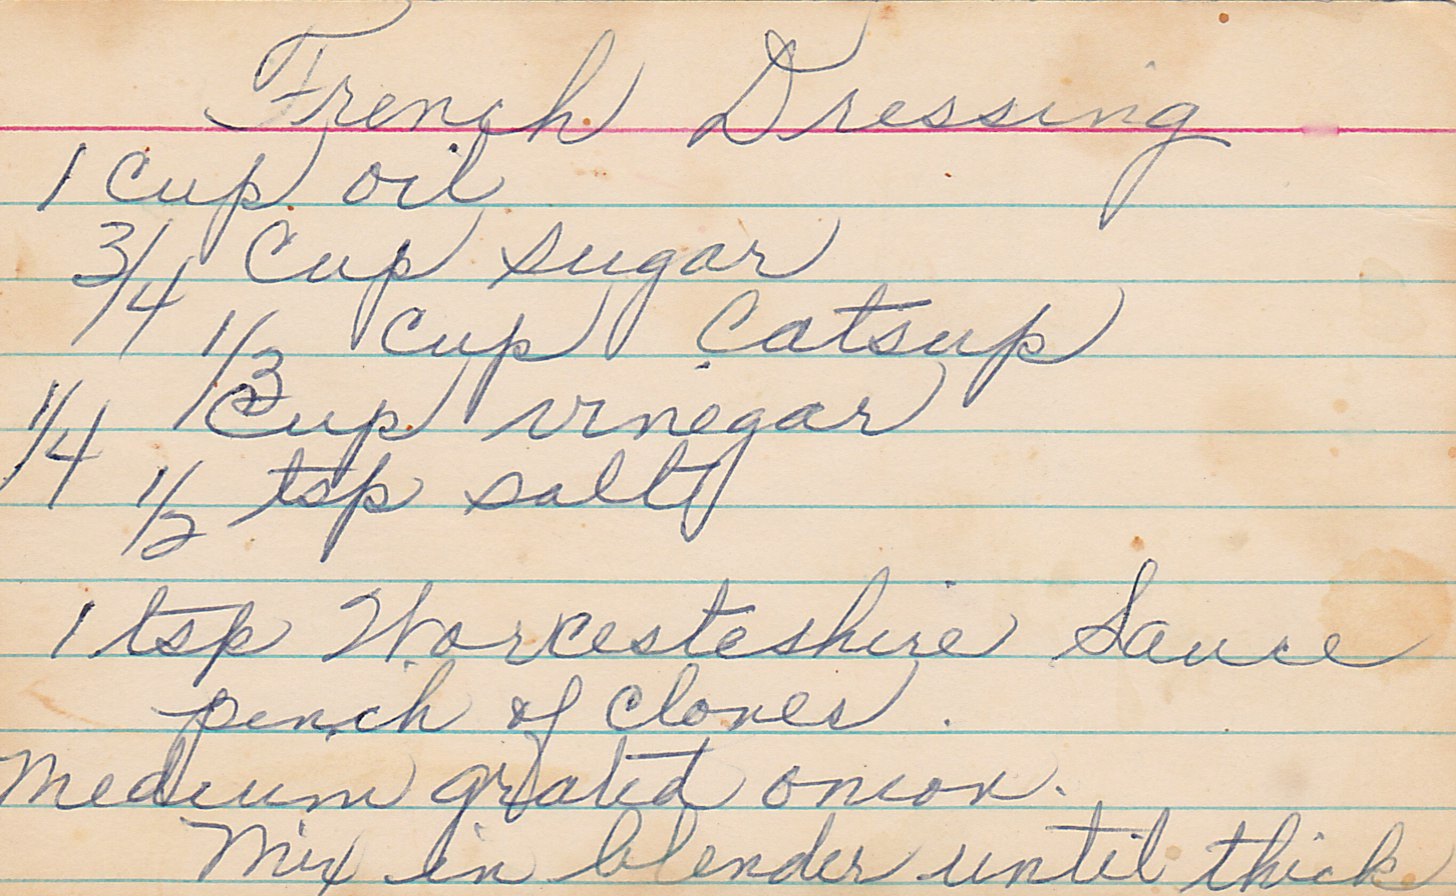 French Dressing
1 cup oil
3/4 cup sugar
1/3 cup Catsup
1/4 cup vinegar
1/2 tsp salt
1 tsp Worcesteshire Sauce
pinch of cloves.
Medium grated onion.
Mix in blender until thick